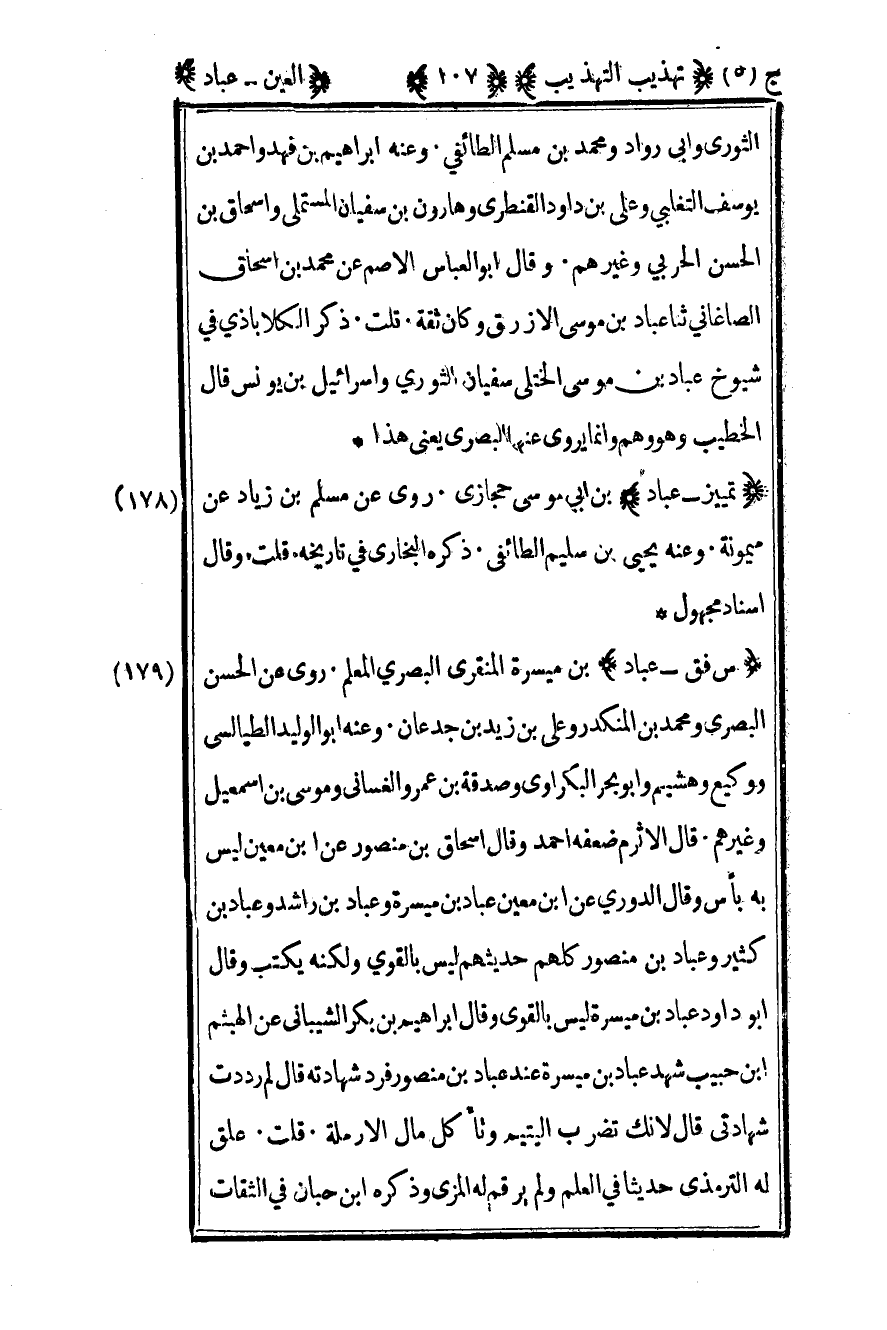 ج (٥) ﴿ تهذيب التهذيب ﴾ ﴿ ١٠٧ ﴾ ﴿ العين - عباد ﴾
الثورى وابى رواد ومحمد بن مسلم الطائفي ٠ وعنه ابراهيم بن فهد واحمد بن
يوسف التغلبي وعلى بن داود القنطرى وهارون بن سفيان المستملى واسحاق بن
الحسن الحربي وغيرهم ٠ وقال ابوالعباس الاصم عن محمد بن اسحاق
الصاغاني ثنا عباد بن موسى الازرق وكان ثقة ٠ قلت ٠ ذكر الكلاباذي في
شيوخ عباد بن موسى الختلى سفيان الثوري واسرائيل بن يونس قال
الخطيب وهو وهم وانما يروى عنهما البصرى يعنى هذا *
﴿ تمييز - عباد ﴾ بن ابي موسى حجازى ٠ روى عن مسلم بن زياد عن (١٧٨)
ميمونة ٠ وعنه يحيى بن سليم الطائفى ٠ ذكره البخارى في تاريخه ٠ قلت ٠ وقال
اسناد مجهول *
﴿ س فق - عباد ﴾ بن ميسرة المنقرى البصري المعلم ٠ روى عن الحسن (١٧٩)
البصري ومحمد بن المنكدر وعلى بن زيد بن جدعان ٠ وعنه ابوالوليد الطيالسى
ووكيع وهشيم وابوبحر البكراوى وصدقة بن عمرو الغسانى وموسى بن اسمعيل
وغيرهم ٠ قال الاثرم ضعفه احمد وقال اسحاق بن منصور عن ابن معين ليس
به بأس وقال الدوري عن ابن معين عباد بن ميسرة وعباد بن راشد وعباد بن
كثير وعباد بن منصور كلهم حديثهم ليس بالقوي ولكنه يكتب وقال
ابو داود عباد بن ميسرة ليس بالقوى وقال ابراهيم بن بكر الشيبانى عن الهيثم
ابن حبيب شهد عباد بن ميسرة عند عباد بن منصور فرد شهادته قال لم رددت
شهادتى قال لانك تضرب اليتيم وتأكل مال الارملة ٠ قلت ٠ علق
له الترمذى حديثا في العلم ولم يرقم له المزى وذكره ابن حبان في الثقات